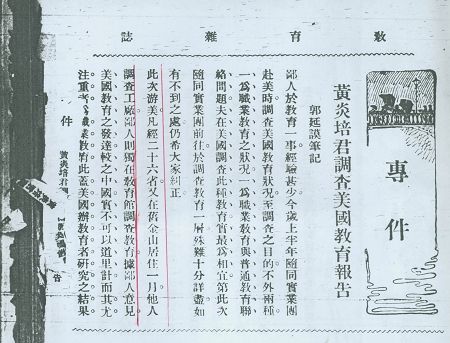 教育雜誌
專件
黃炎培君調查美國教育報告
郭廷謨筆記
鄙人於教育一事經驗甚少今歲上半年隨同實業團
赴美時調查美國教育狀況至調查之目的不外兩種
一爲職業教育之狀況一爲職業教育與普通教育聯
絡問題夫在美國調查此種教育實最爲相宜第此次
隨同實業團前往於調查教育一層殊難十分詳盡如
有不到之處仍希大家糾正
此次游美凡經二十六省又在舊金山居住一月他人
調查工廠鄙人則獨在教育館調查教育據鄙人意見
美國教育之發達較之中國實不可以道里計而其尤
注重者職業教育此蓋美國辦教育者研究之結果
件
黃炎培君
告